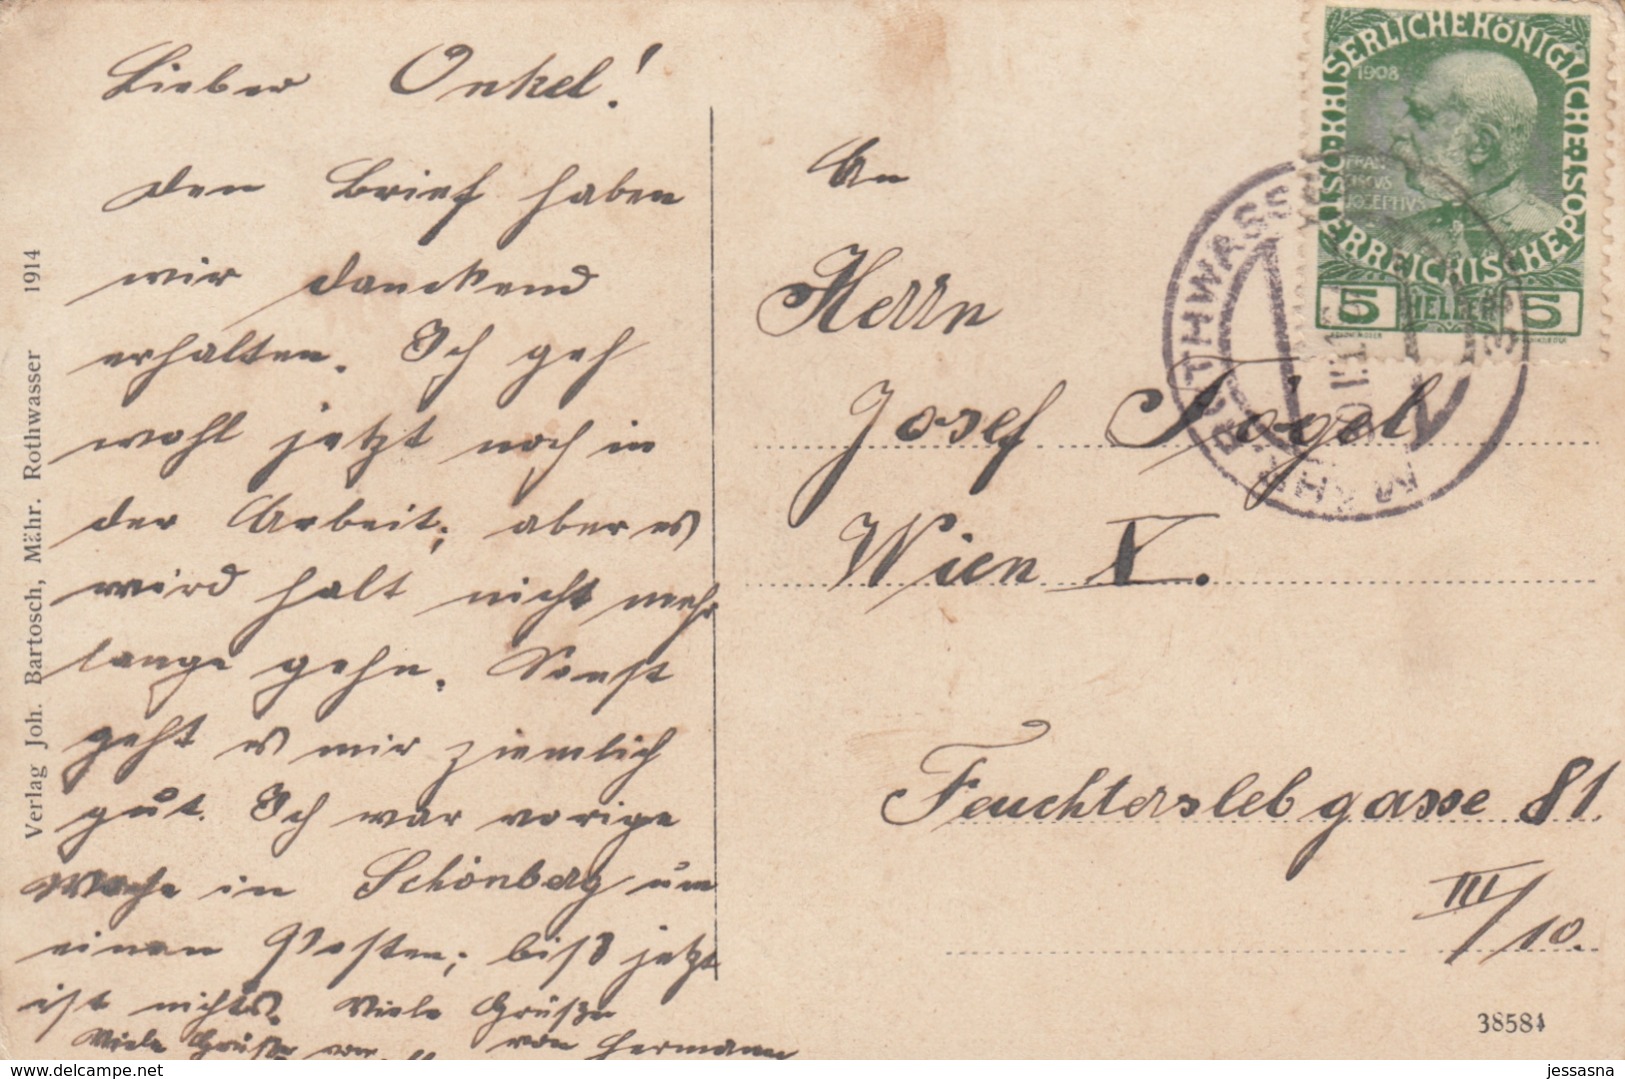 Lieber Onkel!
den Brief haben
wir danckend
erhalten. Ich geh
wohl jetzt noch in
der Arbeit; aber es
wird halt nicht mehr
lange gehn. Sonst
geht es mir ziemlich
gut. Ich war vorige
Woche in Schönberg um
einen Posten; biß jetzt
ist nichts. Viele Grüße
von Hermann
Viele Grüße von
Verlag Joh. Bartosch, Mähr. Rothwasser 1914
An
Herrn
Josef Fogel
Wien V.
Feuchterslebgasse 81.
III/10.
38581
KAISERLICHEKÖNIGLICHE ÖSTERREICHISCHE POST
1908
FRAN
CISCVS
JOSEPHVS
5 HELLER 5
MÄHR. ROTHWASSER
jessasna